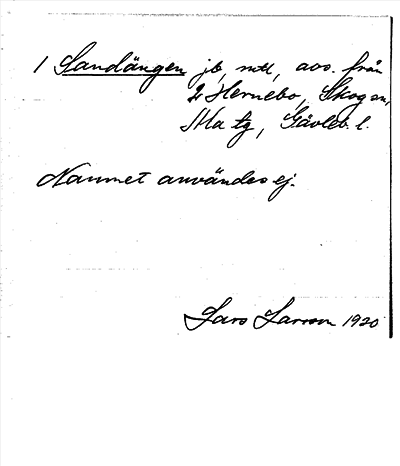 1 Sandängen jb, mtl, avs. från
2 Hernebo, Skog sn,
Ala tg, Gävleb. l.
Namnet användes ej.
Lars Larsson 1920